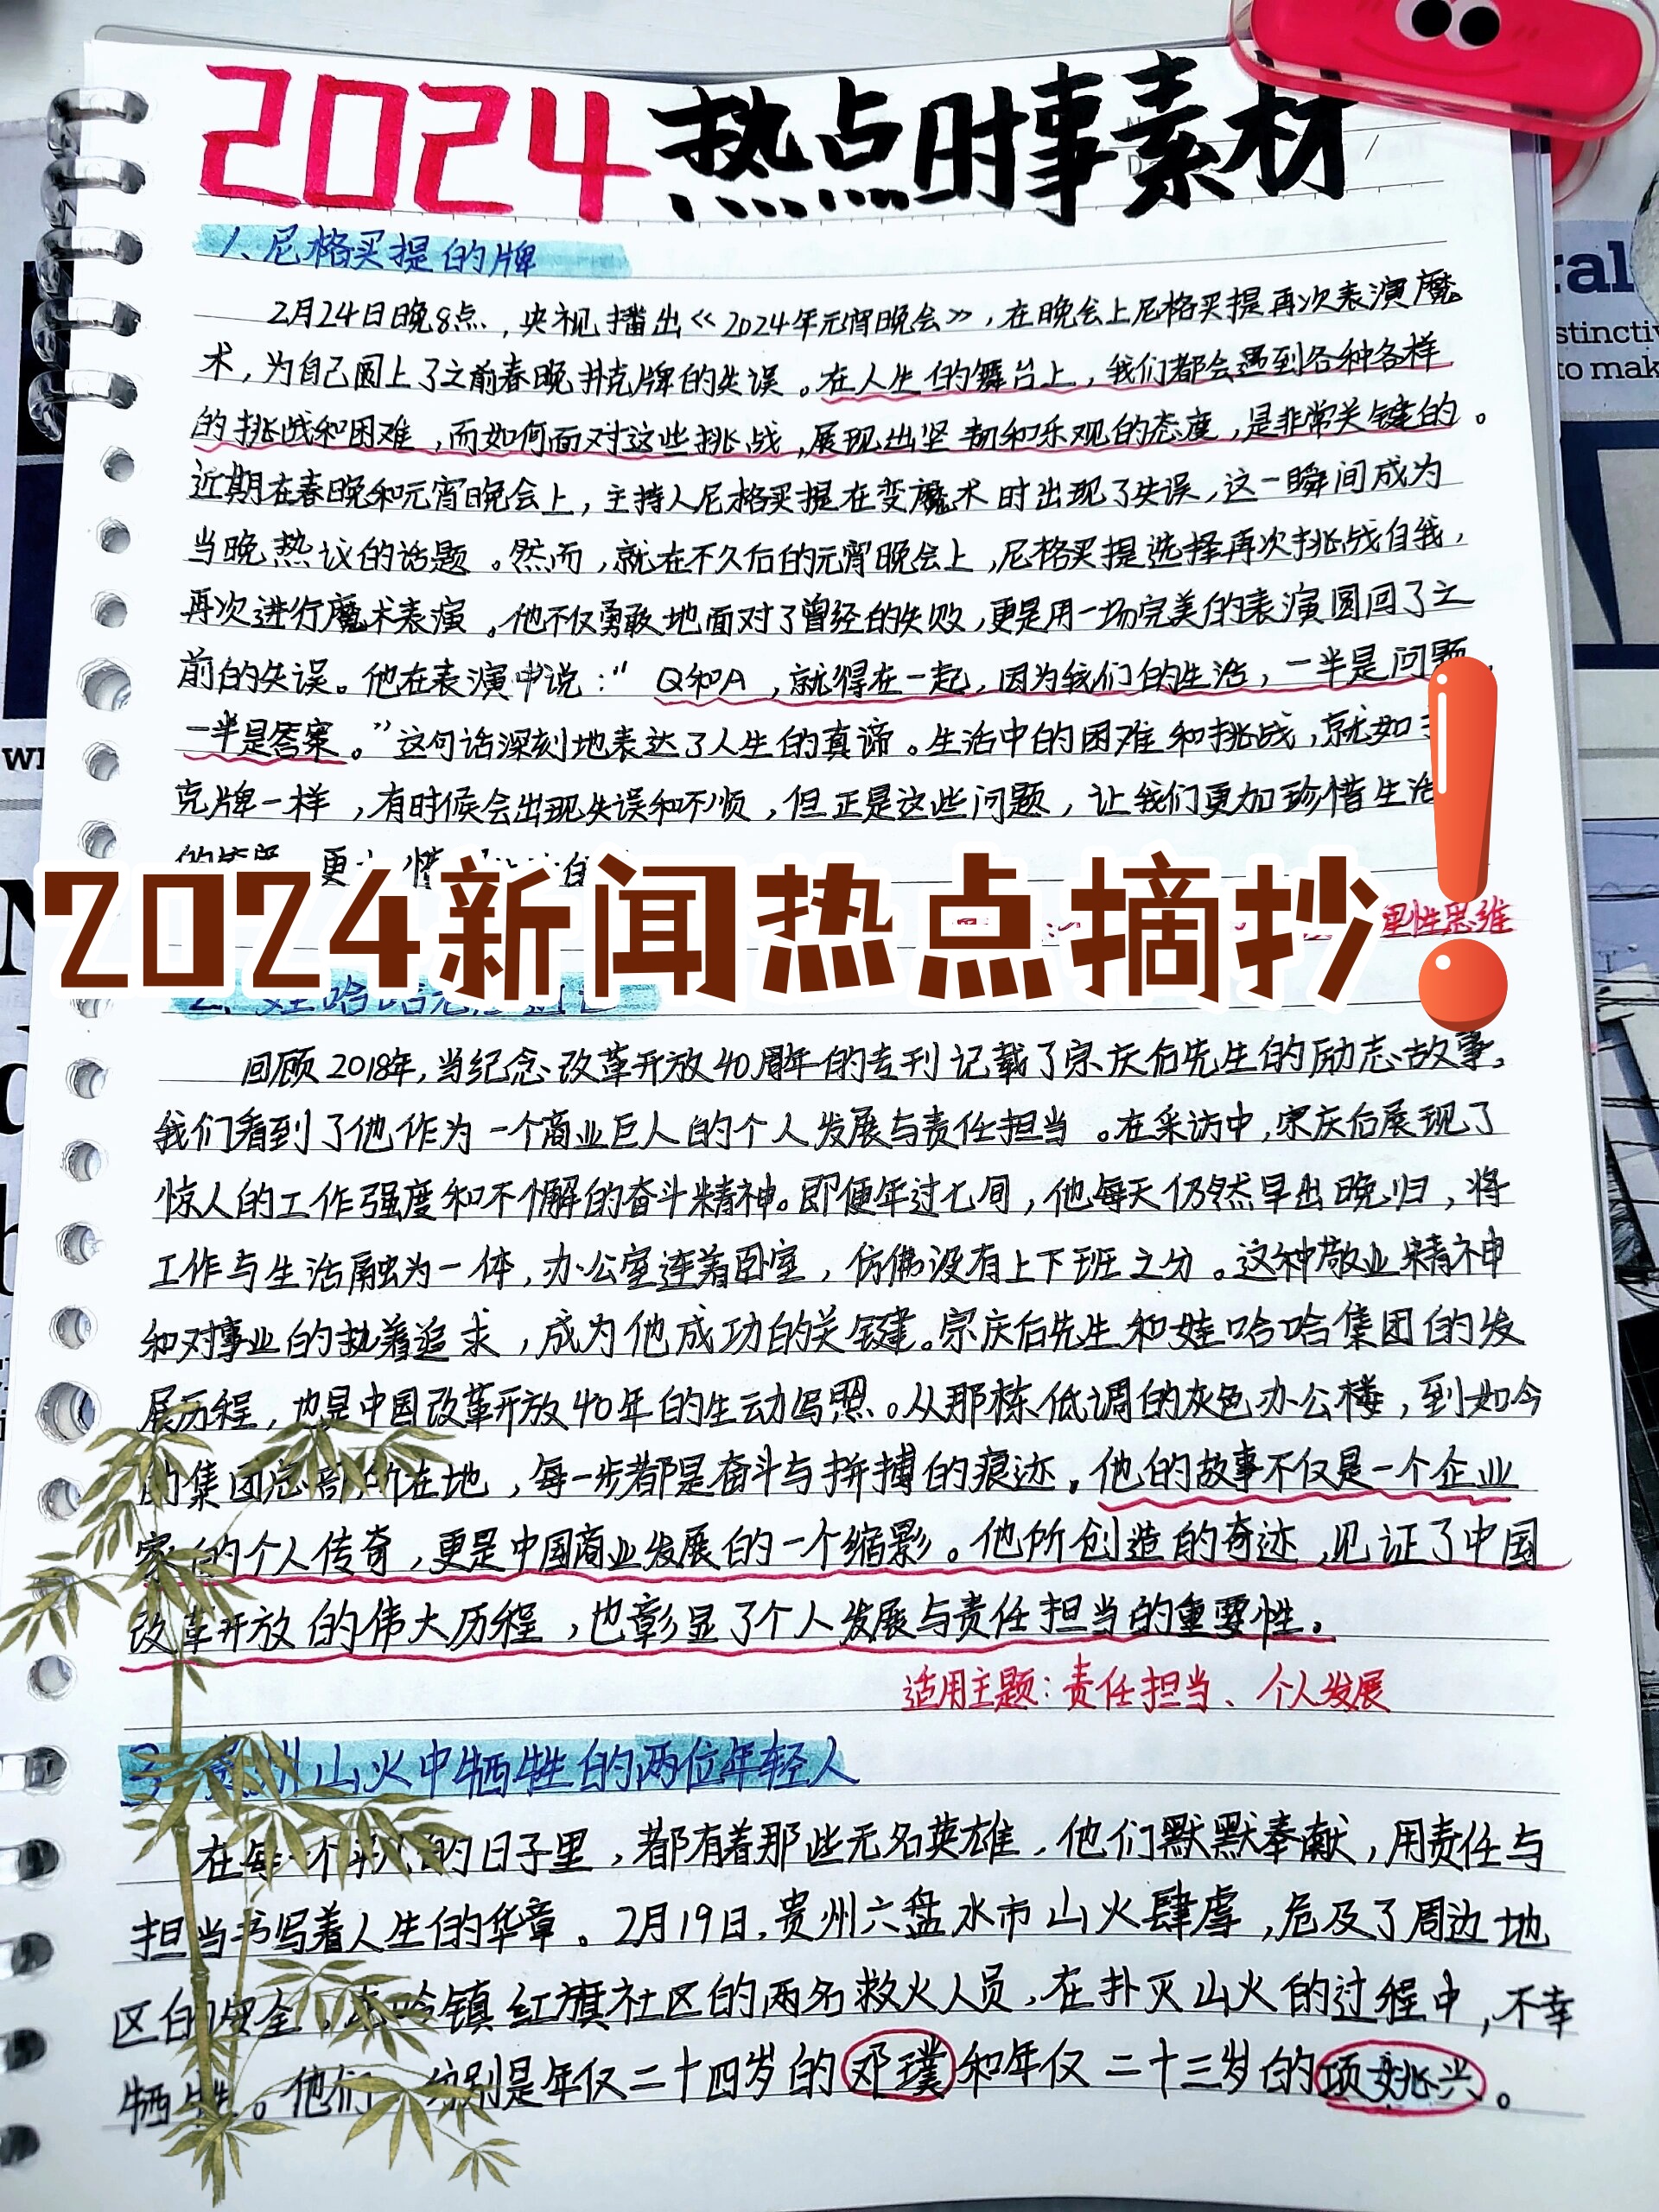 2024热点时事素材
1、尼格买提的牌
2月24日晚8点，央视播出《2024年元宵晚会》，在晚会上尼格买提再次表演魔
术，为自己圆上了之前春晚扑克牌的失误。在人生的舞台上，我们都会遇到各种各样
的挑战和困难，而如何面对这些挑战，展现出坚韧和乐观的态度，是非常关键的。
近期在春晚和元宵晚会上，主持人尼格买提在变魔术时出现了失误，这一瞬间成为
当晚热议的话题。然而，就在不久后的元宵晚会上，尼格买提选择再次挑战自我，
再次进行魔术表演。他不仅勇敢地面对了曾经的失败，更是用一场完美的表演圆回了之
前的失误。他在表演中说：“Q和A，就得在一起，因为我们的生活，一半是问题
一半是答案。”这句话深刻地表达了人生的真谛。生活中的困难和挑战，就如
克牌一样，有时候会出现失误和不顺，但正是这些问题，让我们更加珍惜生活
2024新闻热点摘抄！
理性思维
回顾2018年，当纪念改革开放40周年的专刊记载了宗庆后先生的励志故事，
我们看到了他作为一个商业巨人的个人发展与责任担当。在采访中，宗庆后展现了
惊人的工作强度和不懈的奋斗精神。即便年过七旬，他每天仍然早出晚归，将
工作与生活融为一体，办公室连着卧室，仿佛没有上下班之分。这种敬业精神
和对事业的执着追求，成为他成功的关键。宗庆后先生和娃哈哈集团的发
展历程，也是中国改革开放40年的生动写照。从那栋低调的灰色办公楼，到如今
的集团总部所在地，每一步都是奋斗与拼搏的痕迹。他的故事不仅是一个企业
家的个人传奇，更是中国商业发展的一个缩影。他所创造的奇迹，见证了中国
改革开放的伟大历程，也彰显了个人发展与责任担当的重要性。
适用主题：责任担当、个人发展
3、贵州山火中牺牲的两位年轻人
在每一个平凡的日子里，都有着那些无名英雄，他们默默奉献，用责任与
担当书写着人生的华章。2月19日，贵州六盘水市山火肆虐，危及了周边地
区的安全，镇红旗社区的两名救火人员，在扑灭山火的过程中，不幸
牺牲。他们分别是年仅二十四岁的邓璞和年仅二十三岁的项姚兴。